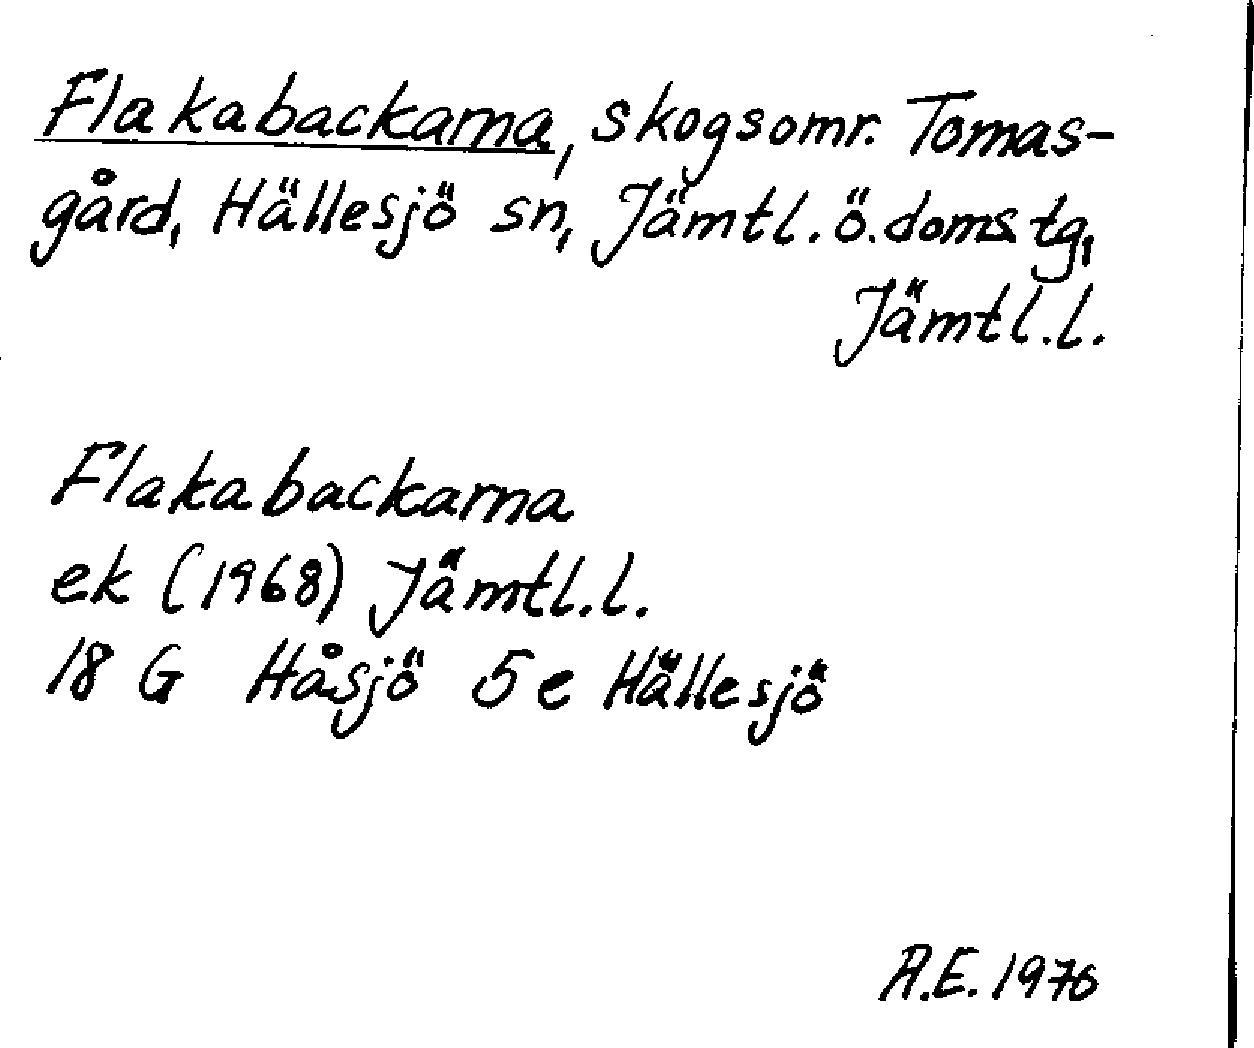 Flakabackarna, skogsomr. Tomas-
gård, Hällesjö sn, Jämtl. ö. domstg,
Jämtl.l.
Flakabackarna
ek (1968) Jämtl.l.
18 G Håsjö 5e Hällesjö
A.E. 1976